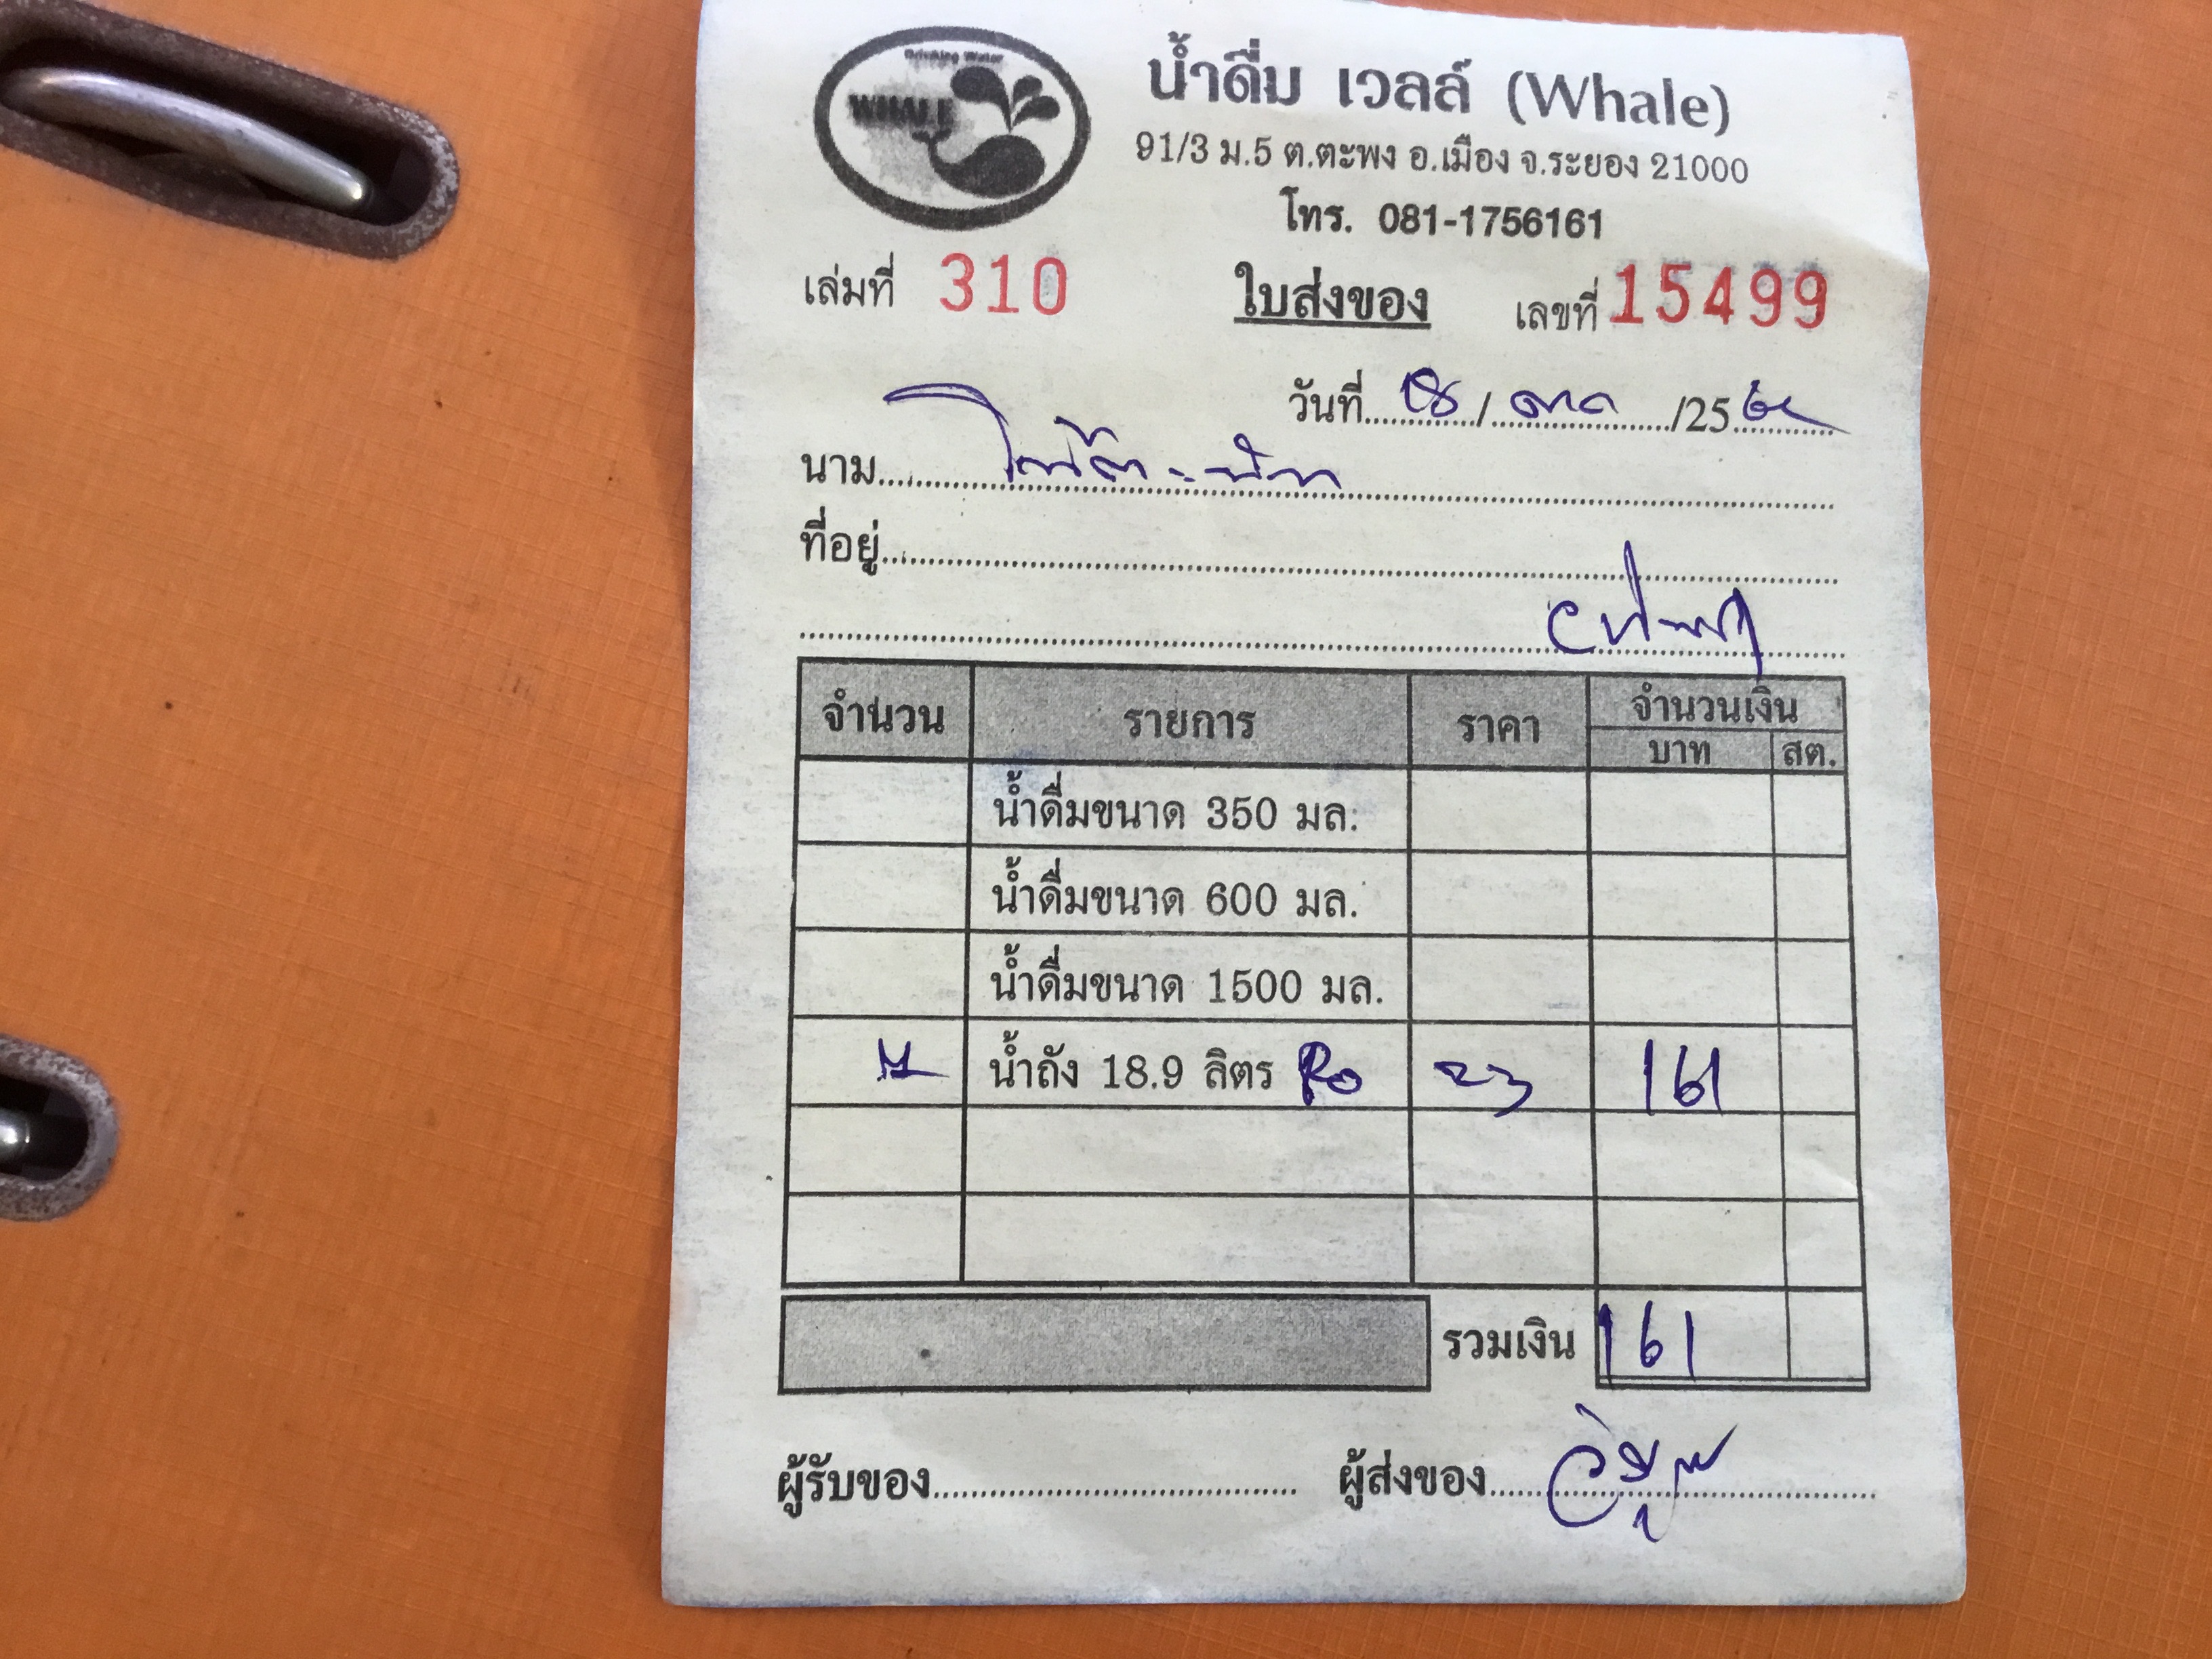 Drinking Water
WHALE
น้ำดื่ม เวลล์ (Whale)
91/3 ม.5 ต.ตะพง อ.เมือง จ.ระยอง 21000
โทร. 081-1756161
เล่มที่ 310 ใบส่งของ เลขที่ 15499
วันที่ / /25
นาม
ที่อยู่
จำนวน รายการ ราคา จำนวนเงิน
บาท สต.
น้ำดื่มขนาด 350 มล.
น้ำดื่มขนาด 600 มล.
น้ำดื่มขนาด 1500 มล.
น้ำถัง 18.9 ลิตร Ro 23 161
รวมเงิน 161
ผู้รับของ ผู้ส่งของ